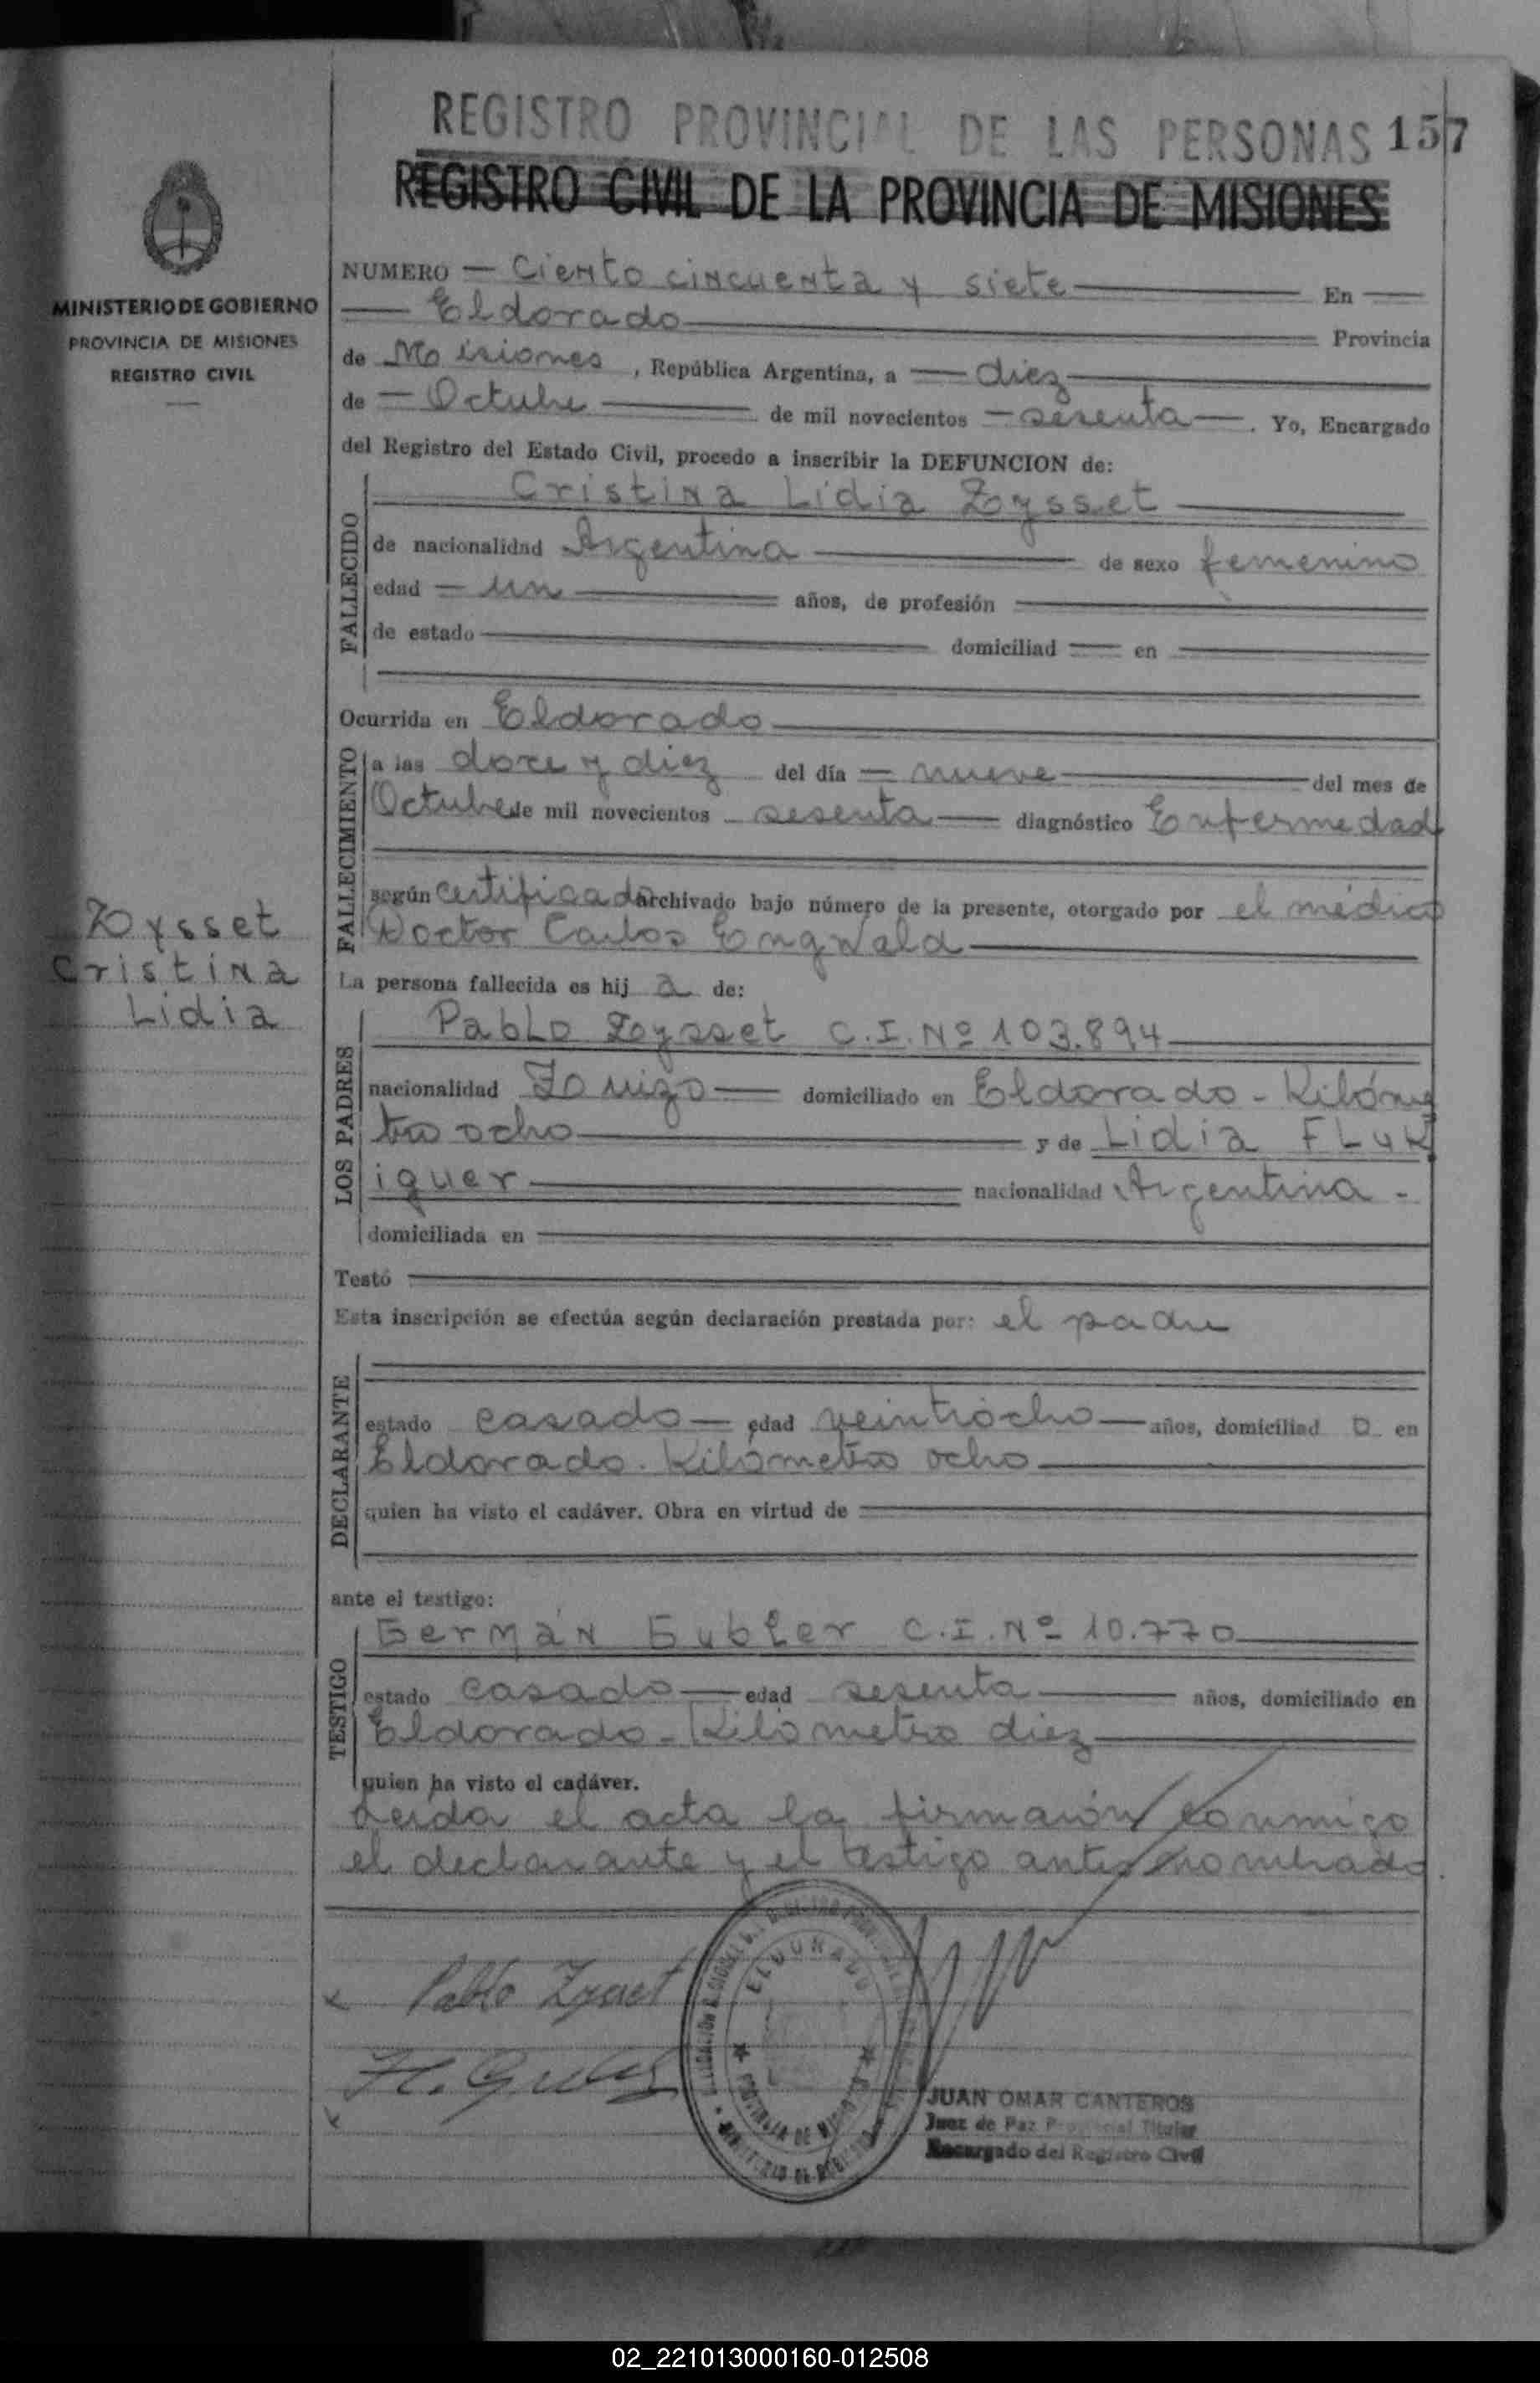 REGISTRO PROVINCIAL DE LAS PERSONAS 157
REGISTRO CIVIL DE LA PROVINCIA DE MISIONES
MINISTERIO DE GOBIERNO
PROVINCIA DE MISIONES
REGISTRO CIVIL
NUMERO — Ciento cincuenta y siete — En —
— Eldorado — Provincia
de Misiones, República Argentina, a — diez —
de — Octubre — de mil novecientos — sesenta —. Yo, Encargado
del Registro del Estado Civil, procedo a inscribir la DEFUNCION de:
FALLECIDO
Cristina Lidia Zysset —
de nacionalidad Argentina — de sexo femenino
edad — un — años, de profesión —
de estado — domiciliad — en —
Ocurrida en Eldorado —
FALLECIMIENTO
a las doce y diez del día — nueve — del mes de
Octubre de mil novecientos sesenta — diagnóstico Enfermedad
según certificado archivado bajo número de la presente, otorgado por el médico
Doctor Carlos Engwald —
Zysset
Cristina
Lidia
La persona fallecida es hij a de:
LOS PADRES
Pablo Zysset C.I. Nº 103.894 —
nacionalidad Zuizo — domiciliado en Eldorado - Kilóme
tro ocho — y de Lidia FLuk
iguer — nacionalidad Argentina -
domiciliada en —
Testó —
Esta inscripción se efectúa según declaración prestada por: el padre
DECLARANTE
estado casado — edad veintiocho — años, domiciliad o en
Eldorado. Kilómetro ocho —
quien ha visto el cadáver. Obra en virtud de —
ante el testigo:
TESTIGO
Germán Gubler C.I. Nº 10.770 —
estado casado — edad sesenta — años, domiciliado en
Eldorado - Kilómetro diez —
quien ha visto el cadáver.
Leida el acta la firmaron conmigo
el declarante y el testigo antes nombrado.
x Pablo Zysset
H. Gubler
x
ELDORADO
PROVINCIA DE MISIONES
JUAN OMAR CANTEROS
Juez de Paz Provincial Titular
Encargado del Registro Civil
02_221013000160-012508